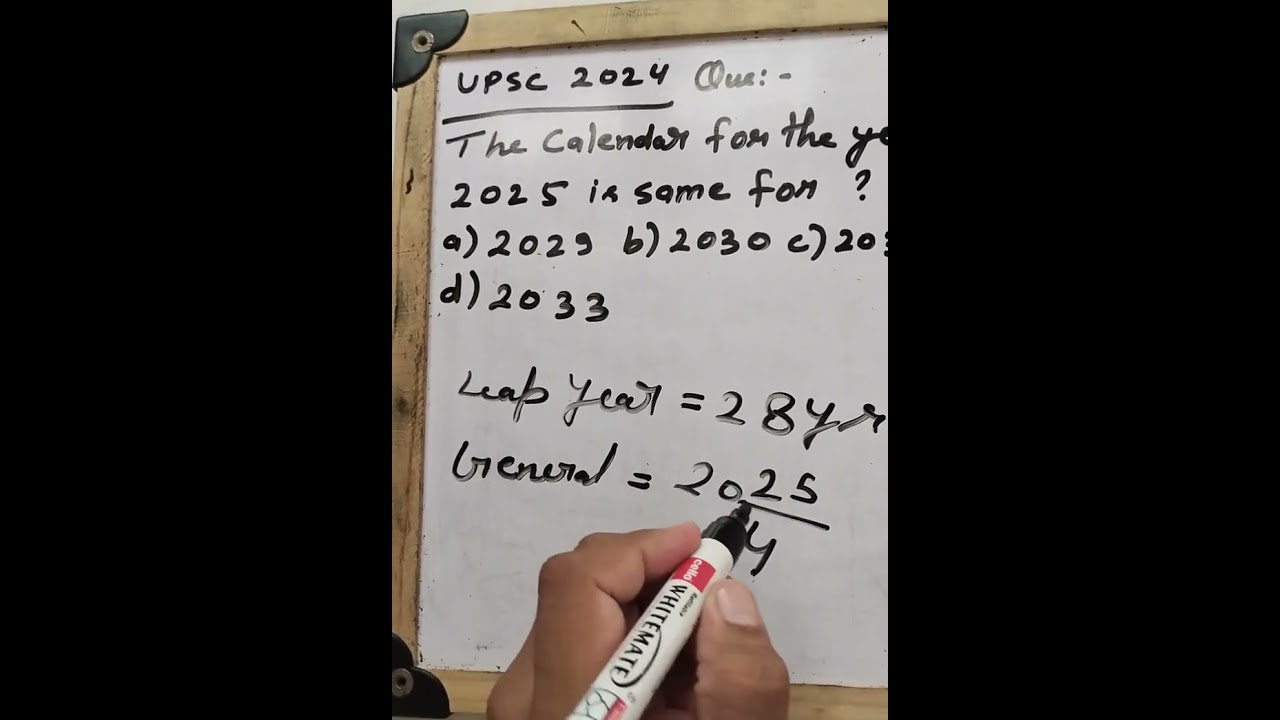 UPSC 2024 Que:-
The Calendar for the ye
2025 is same for ?
a) 2029 b) 2030 c) 203
d) 2033
Leap Year = 28yr
General = 2025
4
cello
WHITEMATE